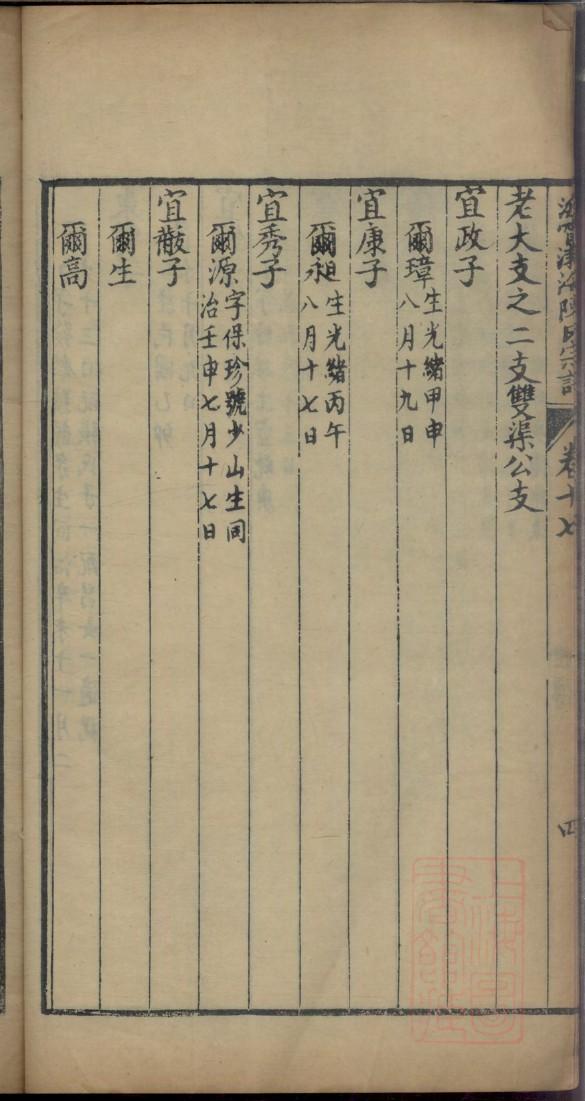 陳氏宗譜 卷十七
四
老大支之二支雙渠公支
宜政子
爾璋 生光緒甲申
八月十九日
宜康子
爾昶 生光緒丙午
八月十七日
宜秀子
爾源 字保珍號少山生同
治壬申七月十七日
宜散子
爾生
爾高